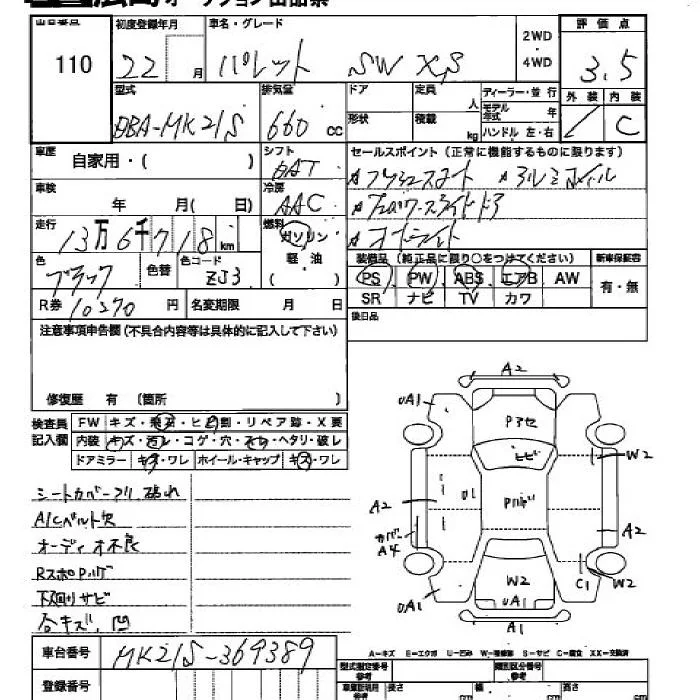 広島オークション出品票
出品番号 初度登録年月 車名・グレード 2WD・4WD 評価点
110 22 月 パレット SW XS 3.5
型式 排気量 ドア 定員 人 ディーラー・並行 外装 内装
DBA-MK21S 660 cc 形状 積載 kg モデル年式 年 ハンドル 左・右 / C
車歴 自家用・( ) シフト DAT セールスポイント(正常に機能するものに限ります)
車検 年 月( 日) 冷房 AAC
走行 13万6千718km 燃料 ガソリン 軽油
色 ブラック 色替 色コード ZJ3
装備品(純正品に限り○をつけてください) 新車保証書
PS PW ABS エアB AW 有・無
SR ナビ TV カワ
R券 10270 円 名変期限 月 日 後日品
注意事項申告欄(不具合内容等は具体的に記入して下さい)
修復歴 有 (箇所 )
検査員記入欄 FW キズ・飛石・ヒビ割・リペア跡・X要
内装 キズ・汚レ・コゲ・穴・スレ・ヘタリ・破レ
ドアミラー キズ・ワレ ホイール・キャップ キズ・ワレ
シートカバー
A/Cベルト欠
オーディオ不良
下廻りサビ
合キズ、凹
A2
UA1 A1
P3セ
ヒビ W2
A2 U1 A2
カバー A4
W2 C1 W2
UA1 UA1
A1
A-キズ E-エクボ U-凹み W-補修跡 S-サビ C-腐食 XX-交換済
車台番号 MK21S-369389
登録番号
型式指定番号 参考 類別区分番号 参考
長さ cm 幅 cm 高さ cm